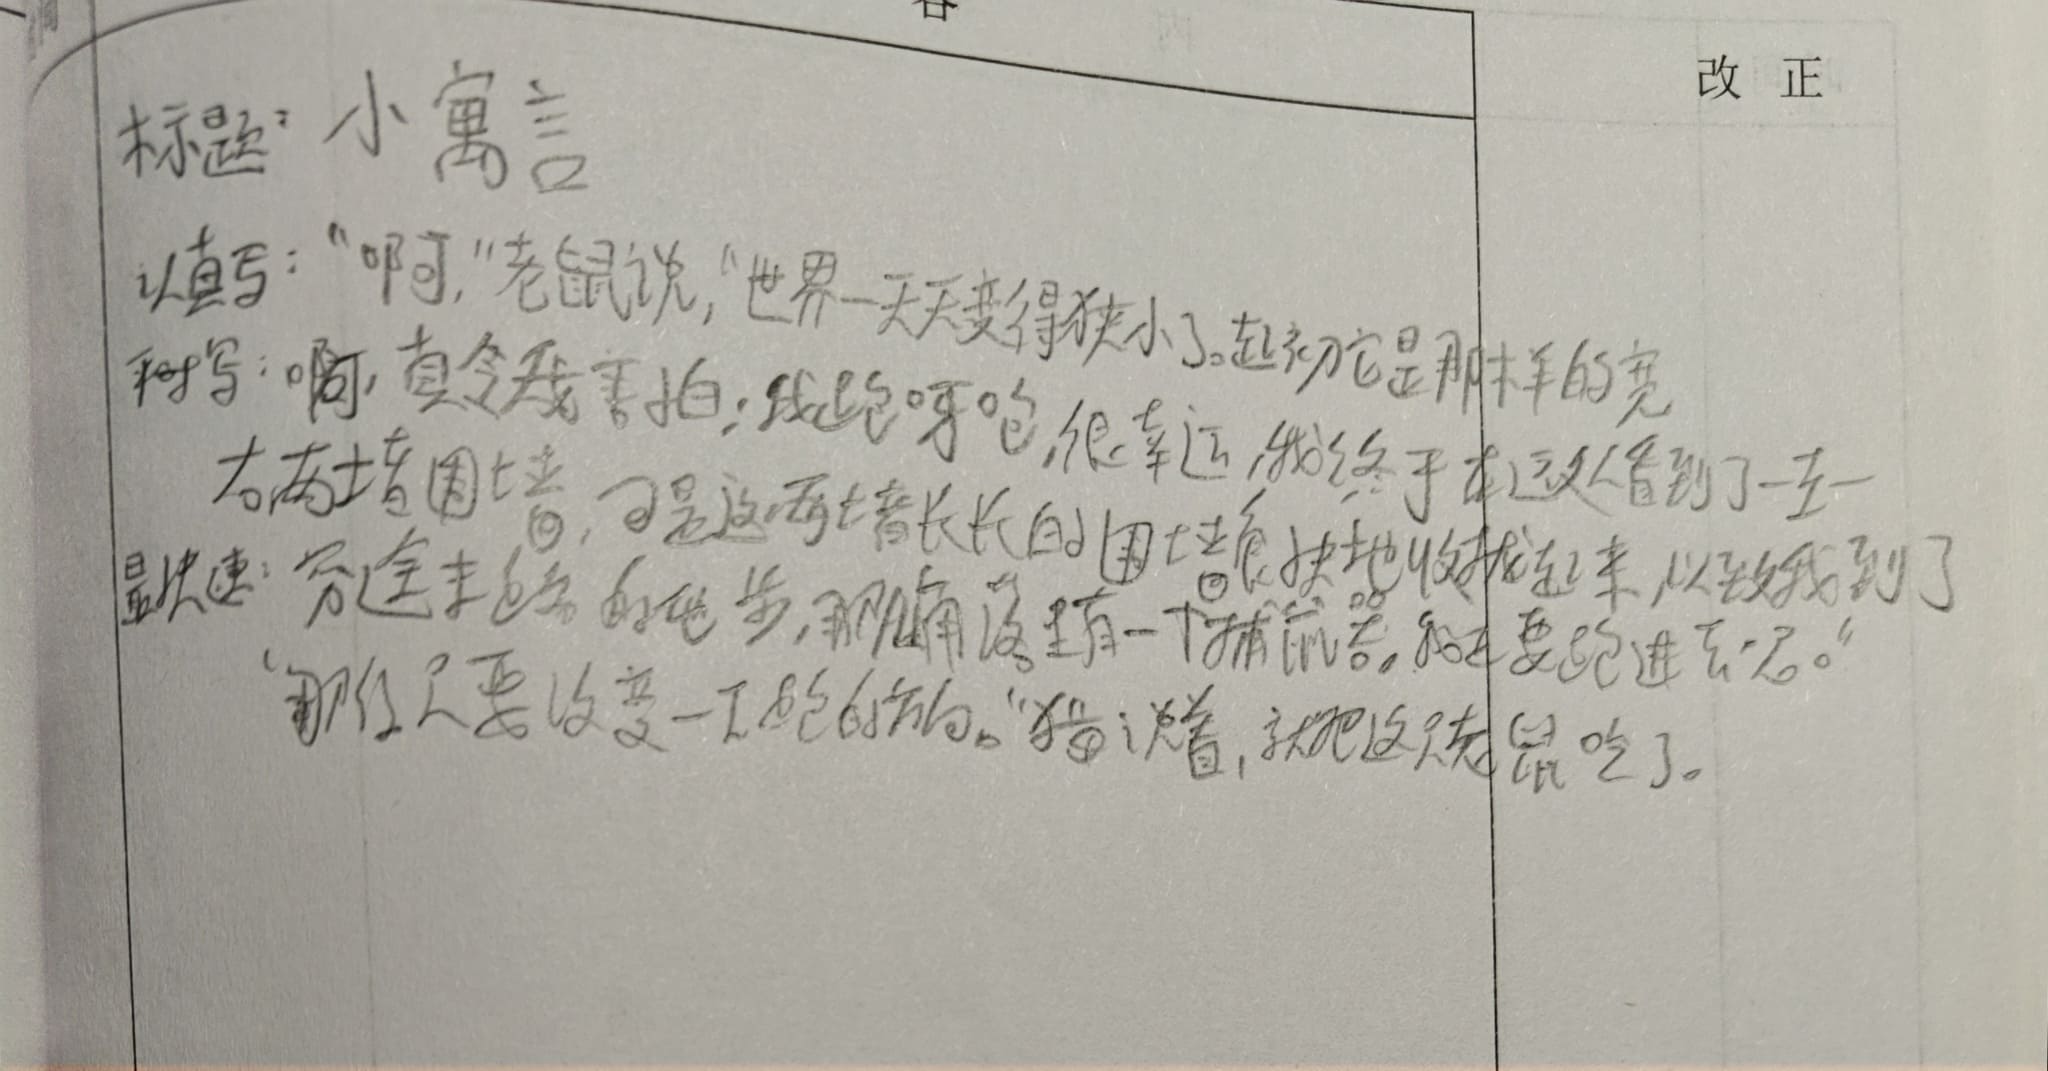 容
改正
标题：小寓言
认真写：“啊，”老鼠说，“世界一天天变得狭小了。起初它是那样的宽
平时写：啊，真令我害怕；我跑呀跑，很幸运，我终于在这又看到了一左一
右两堵围墙，可是这两堵长长的围墙很快地收拢起来，以致我到了
最快速：穷途末路的地步，那角落里有一个捕鼠器，我正要跑进去呢。”
“那你只要改变一下跑的方向。”猫说着，就把这只老鼠吃了。